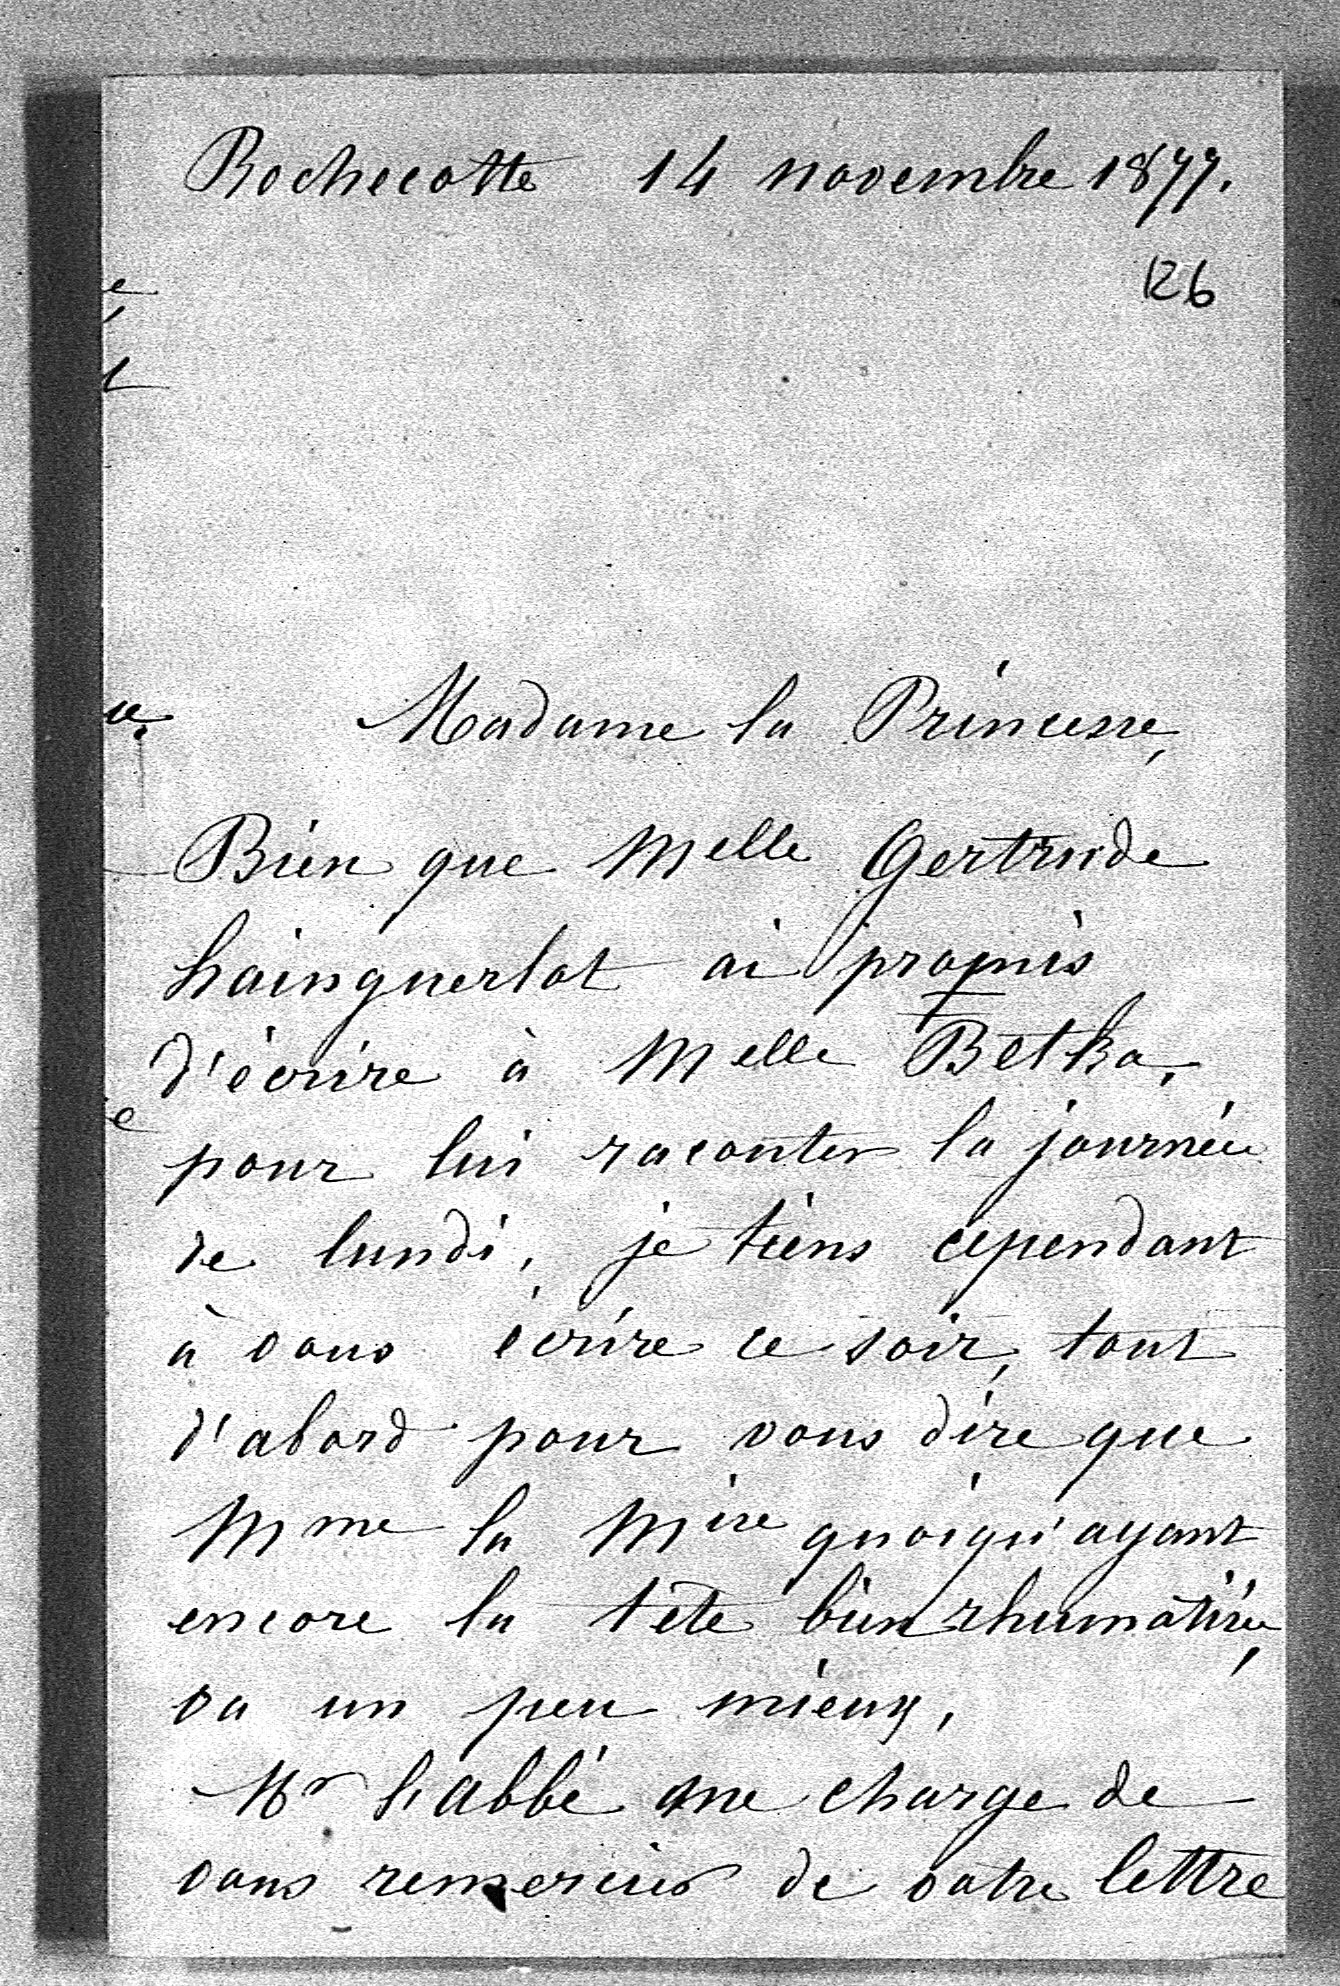 Rochecotte 14 novembre 1877.
126
Madame la Princesse,
Bien que Melle Gertrude
hainguerlot ai promis
d'écrire à Melle Betka,
pour lui raconter la journée
de lundi, je tiens cependant
à vous écrire ce soir, tout
d'abord pour vous dire que
Mme la Mise quoiqu'ayant
encore la tête bien rhumatisée,
va un peu mieux,
Mr L'abbé me charge de
vous remercier de votre lettre